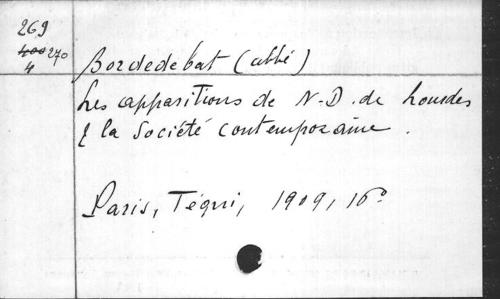 269
400 270
4
Bordedebat (abbé)
Les apparitions de N.-D. de Lourdes
& la Société contemporaine.
Paris, Téqui, 1909, 16°